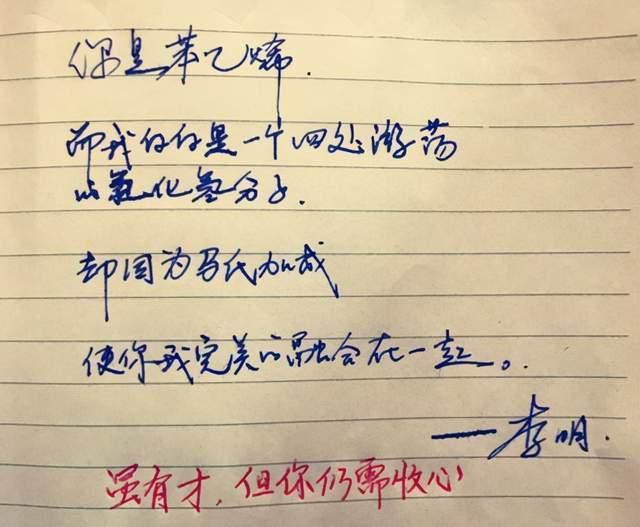 你是苯乙烯.
而我仅仅是一个四处游荡
的氯化氢分子.
却因为马氏加成
使你我完美的融合在一起。
——李明.
虽有才，但你仍需收心